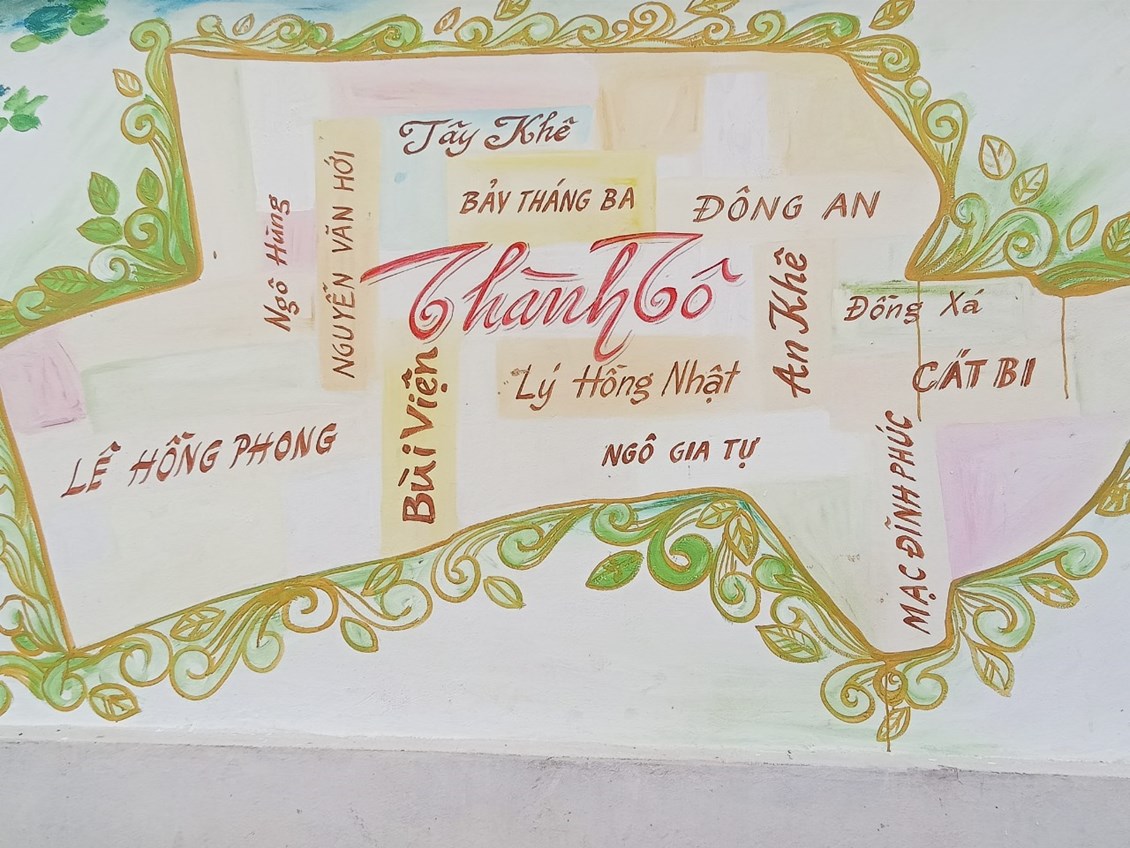 Tây Khê
BẢY THÁNG BA
ĐÔNG AN
Ngô Hùng
NGUYỄN VĂN HỚI
Thành Tô
An Khê
Đồng Xá
CÁT BI
Bùi Viện
Lý Hồng Nhật
LÊ HỒNG PHONG
NGÔ GIA TỰ
MẠC ĐĨNH PHÚC